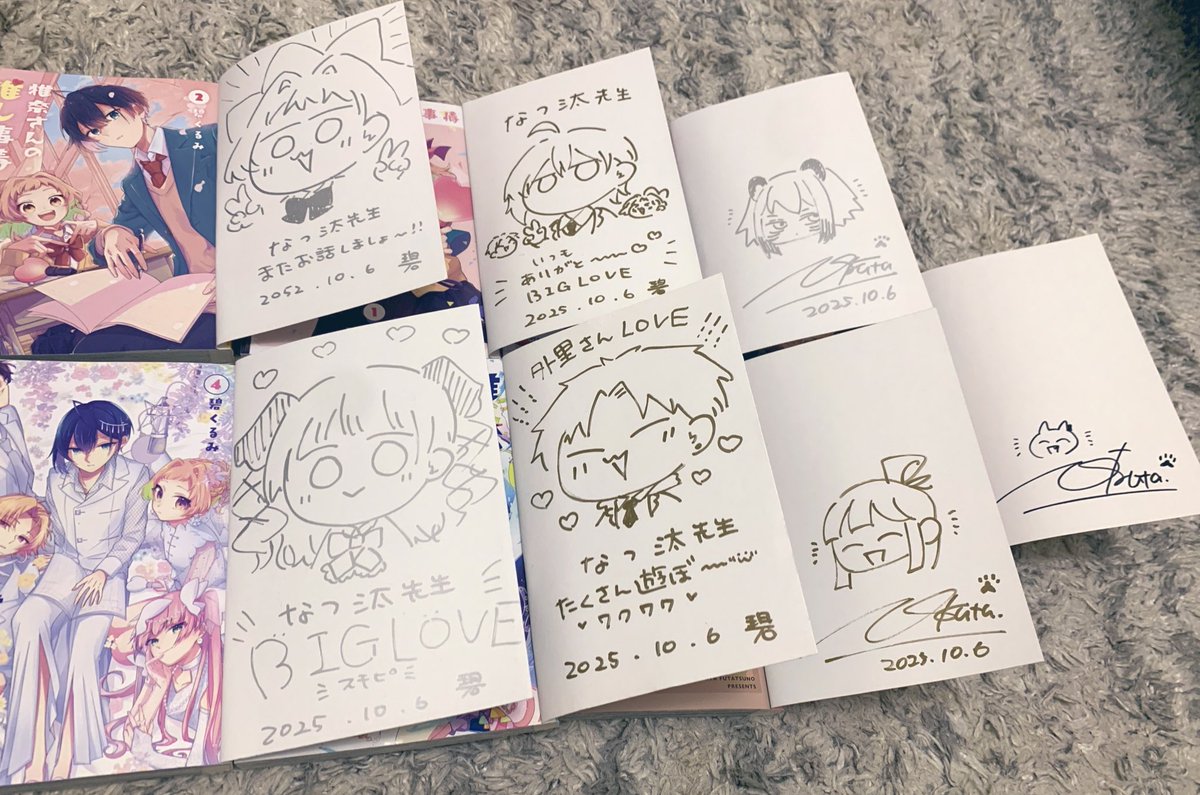 2
碧くるみ
雅奈さんの
推し事情
なつ汰先生
またお話しましょ〜!!
2052.10.6 碧
事情
1
なつ汰先生
いつも
ありがと〜
BIG LOVE
2025.10.6 碧
2025.10.6
4
碧くるみ
なつ汰先生
BIG LOVE
スキピ
2025.10.6 碧
外里さんLOVE
なつ汰先生
たくさん遊ぼ〜
ワクワク
2025.10.6 碧
2025.10.6
FUTATSUNO
PRESENTS